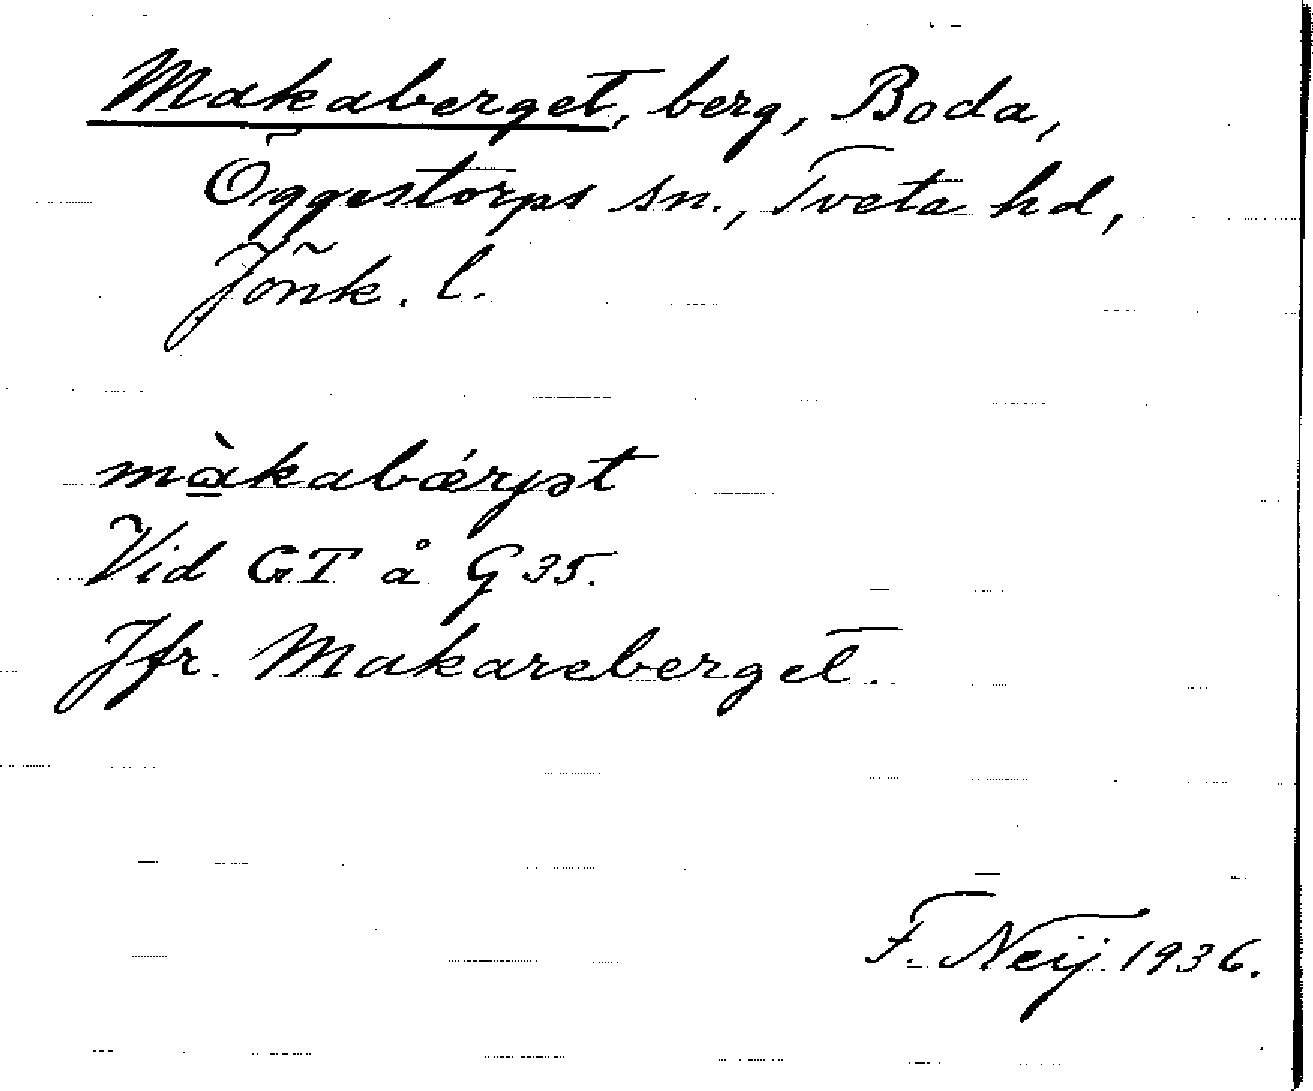 Makaberget, berg, Boda,
Öggestorps sn., Tveta hd,
Jönk. l.
màkabǽrjət
Vid GT å G 35.
Jfr. Makareberget.
F. Neij. 1936.